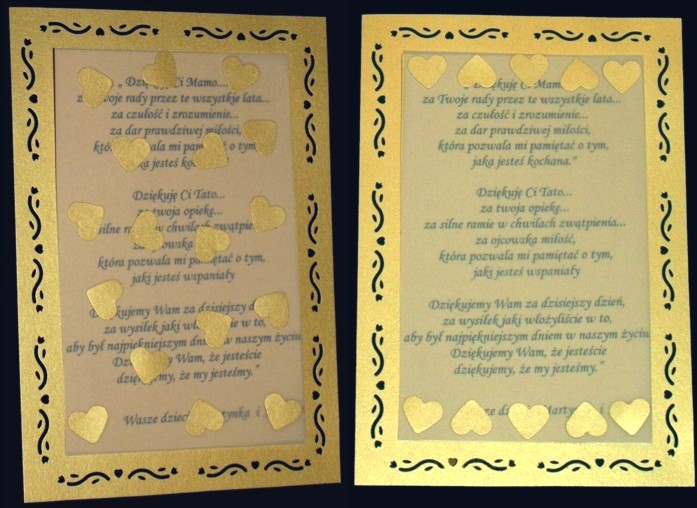 „ Dziękuję Ci Mamo....
za Twoje rady przez te wszystkie lata...
za czułość i zrozumienie...
za dar prawdziwej miłości,
która pozwala mi pamiętać o tym,
jaka jesteś kochana.
Dziękuję Ci Tato...
za twoja opiekę...
silne ramie w chwilach zwątpienia...
za ojcowska
która pozwala mi pamiętać o tym,
jaki jesteś wspaniały
Dziękujemy Wam za dzisiejszy
za wysiłek jaki włożyliście w to,
aby był najpiękniejszym dniem w naszym życiu
Wam, że jesteście
dziękujemy, że my jesteśmy.”
Wasze dzieci Martynka i
„ Dziękuję Ci Mamo
za Twoje rady przez te wszystkie lata...
za czułość i zrozumienie...
za dar prawdziwej miłości,
która pozwala mi pamiętać o tym,
jaka jesteś kochana.”
Dziękuję Ci Tato...
za twoja opiekę...
za silne ramie w chwilach zwątpienia...
za ojcowska miłość,
która pozwala mi pamiętać o tym,
jaki jesteś wspaniały
Dziękujemy Wam za dzisiejszy dzień,
za wysiłek jaki włożyliście w to,
aby był najpiękniejszym dniem w naszym życiu
Dziękujemy Wam, że jesteście
dziękujemy, że my jesteśmy.”
Martynka i